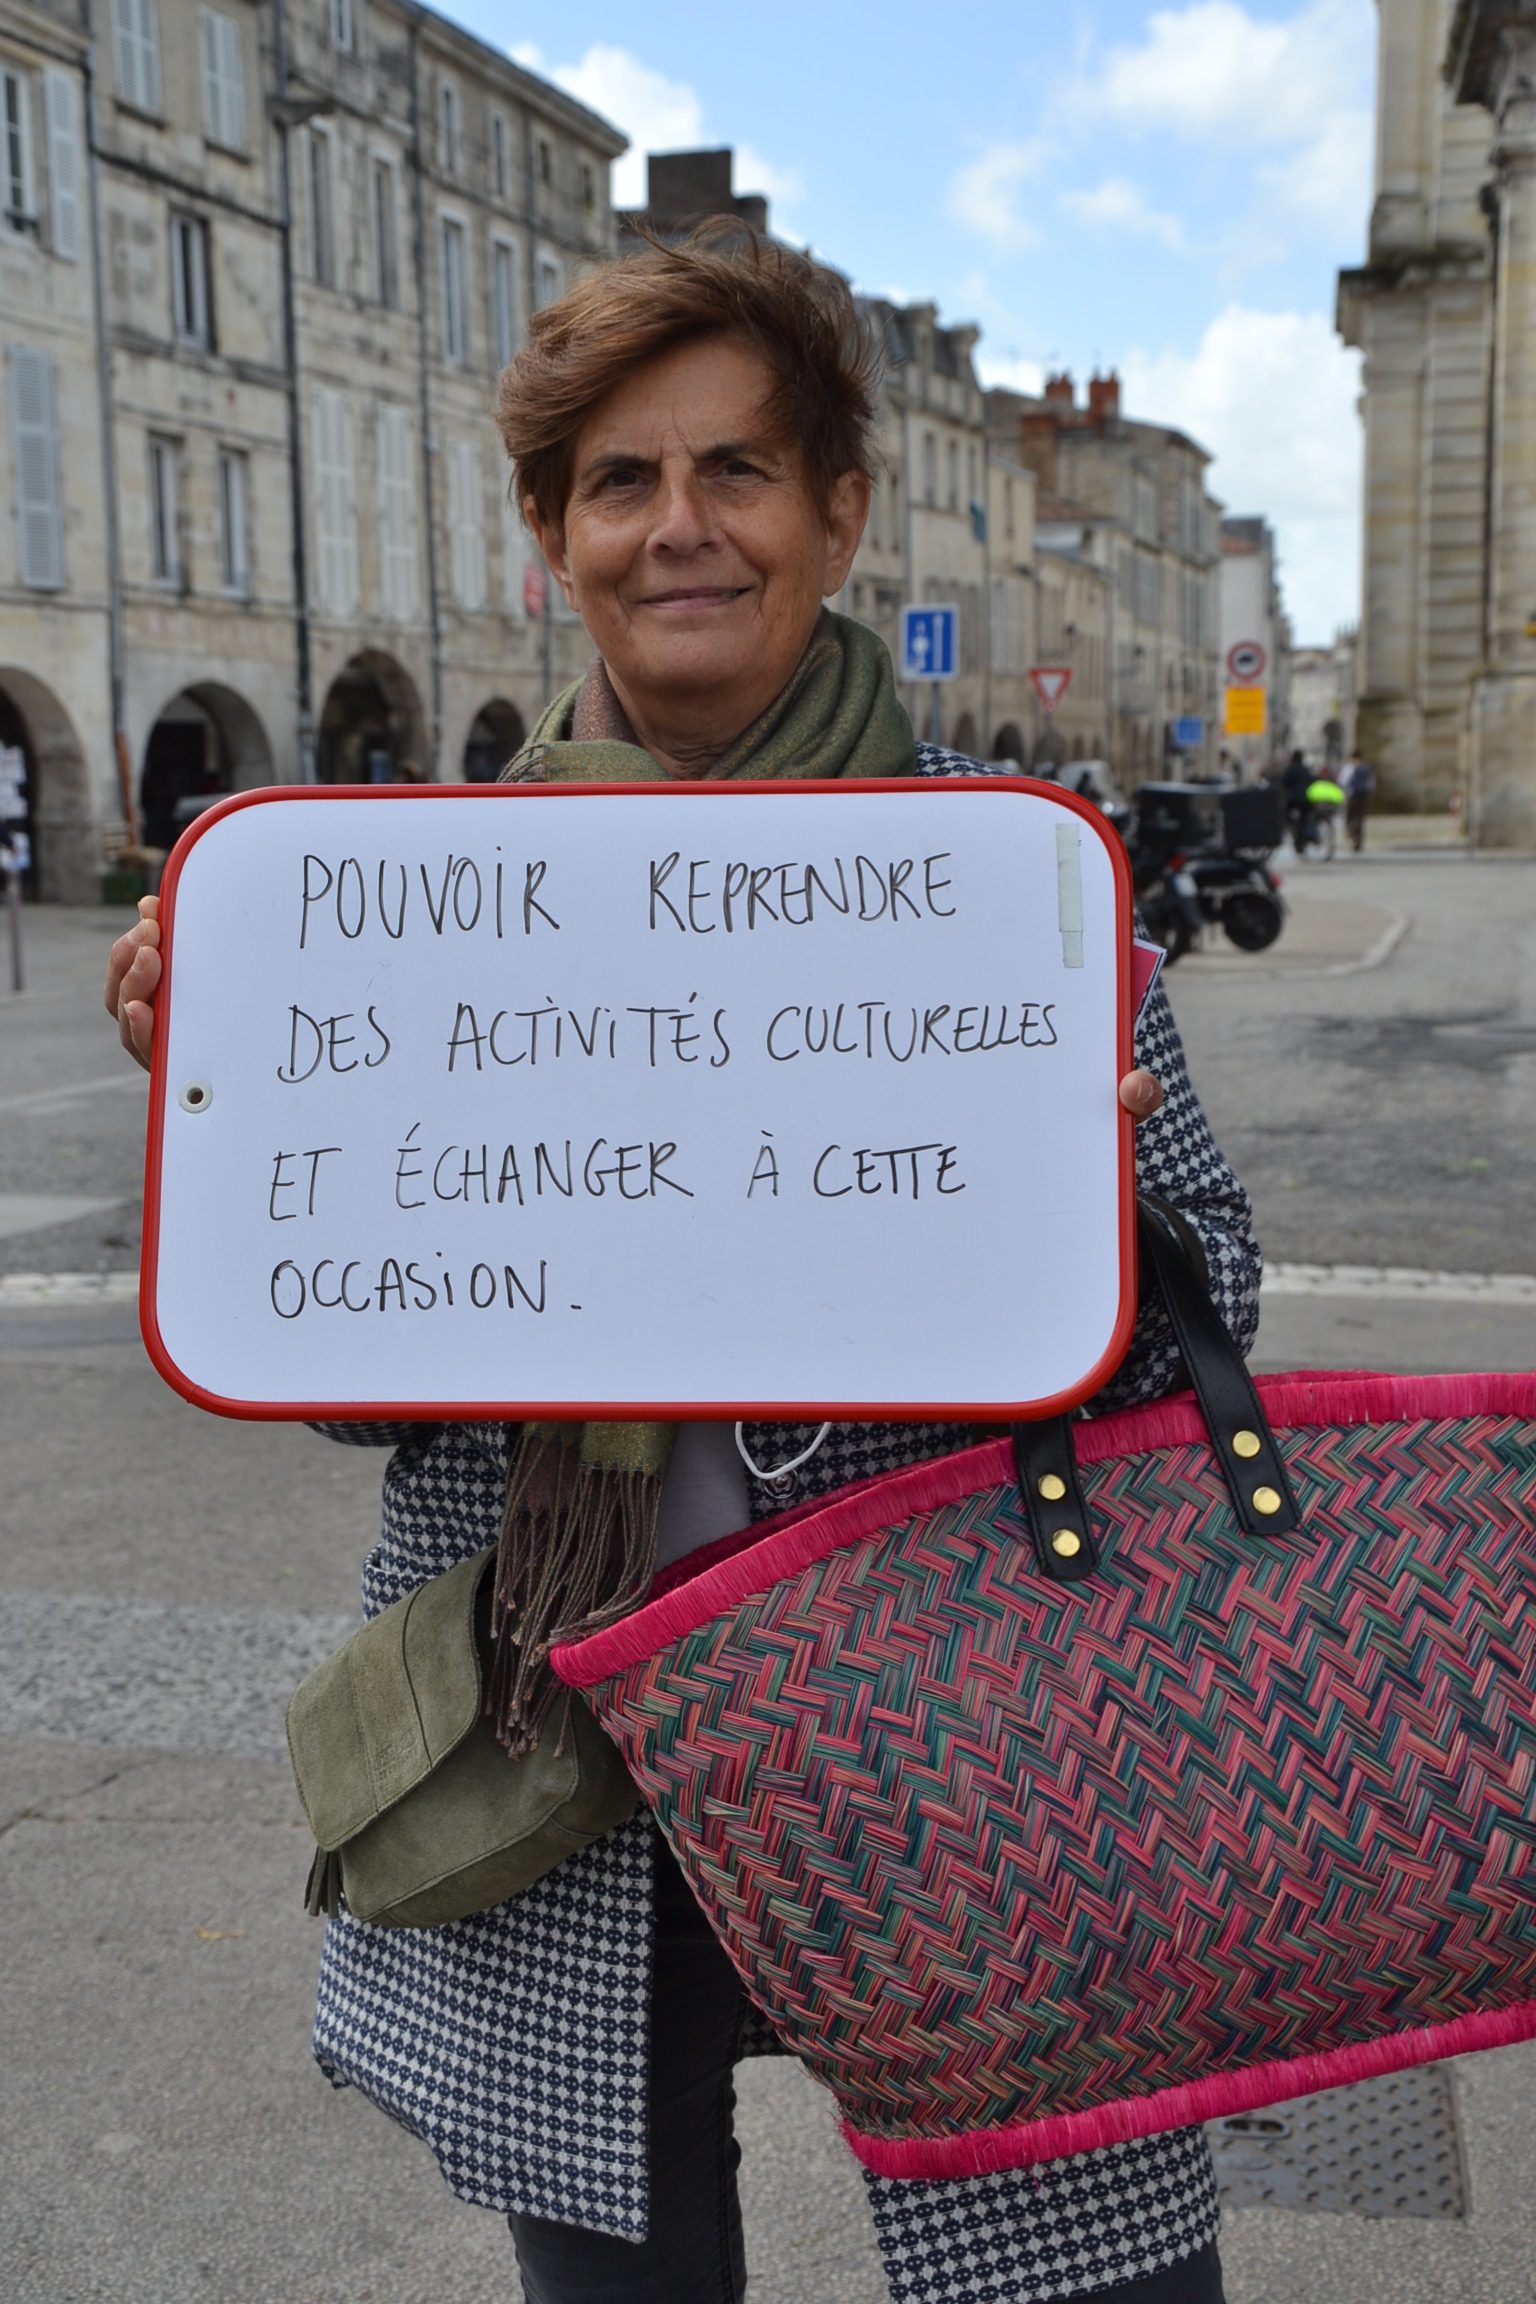 POUVOIR REPRENDRE
DES ACTIVITÉS CULTURELLES
ET ÉCHANGER À CETTE
OCCASION.